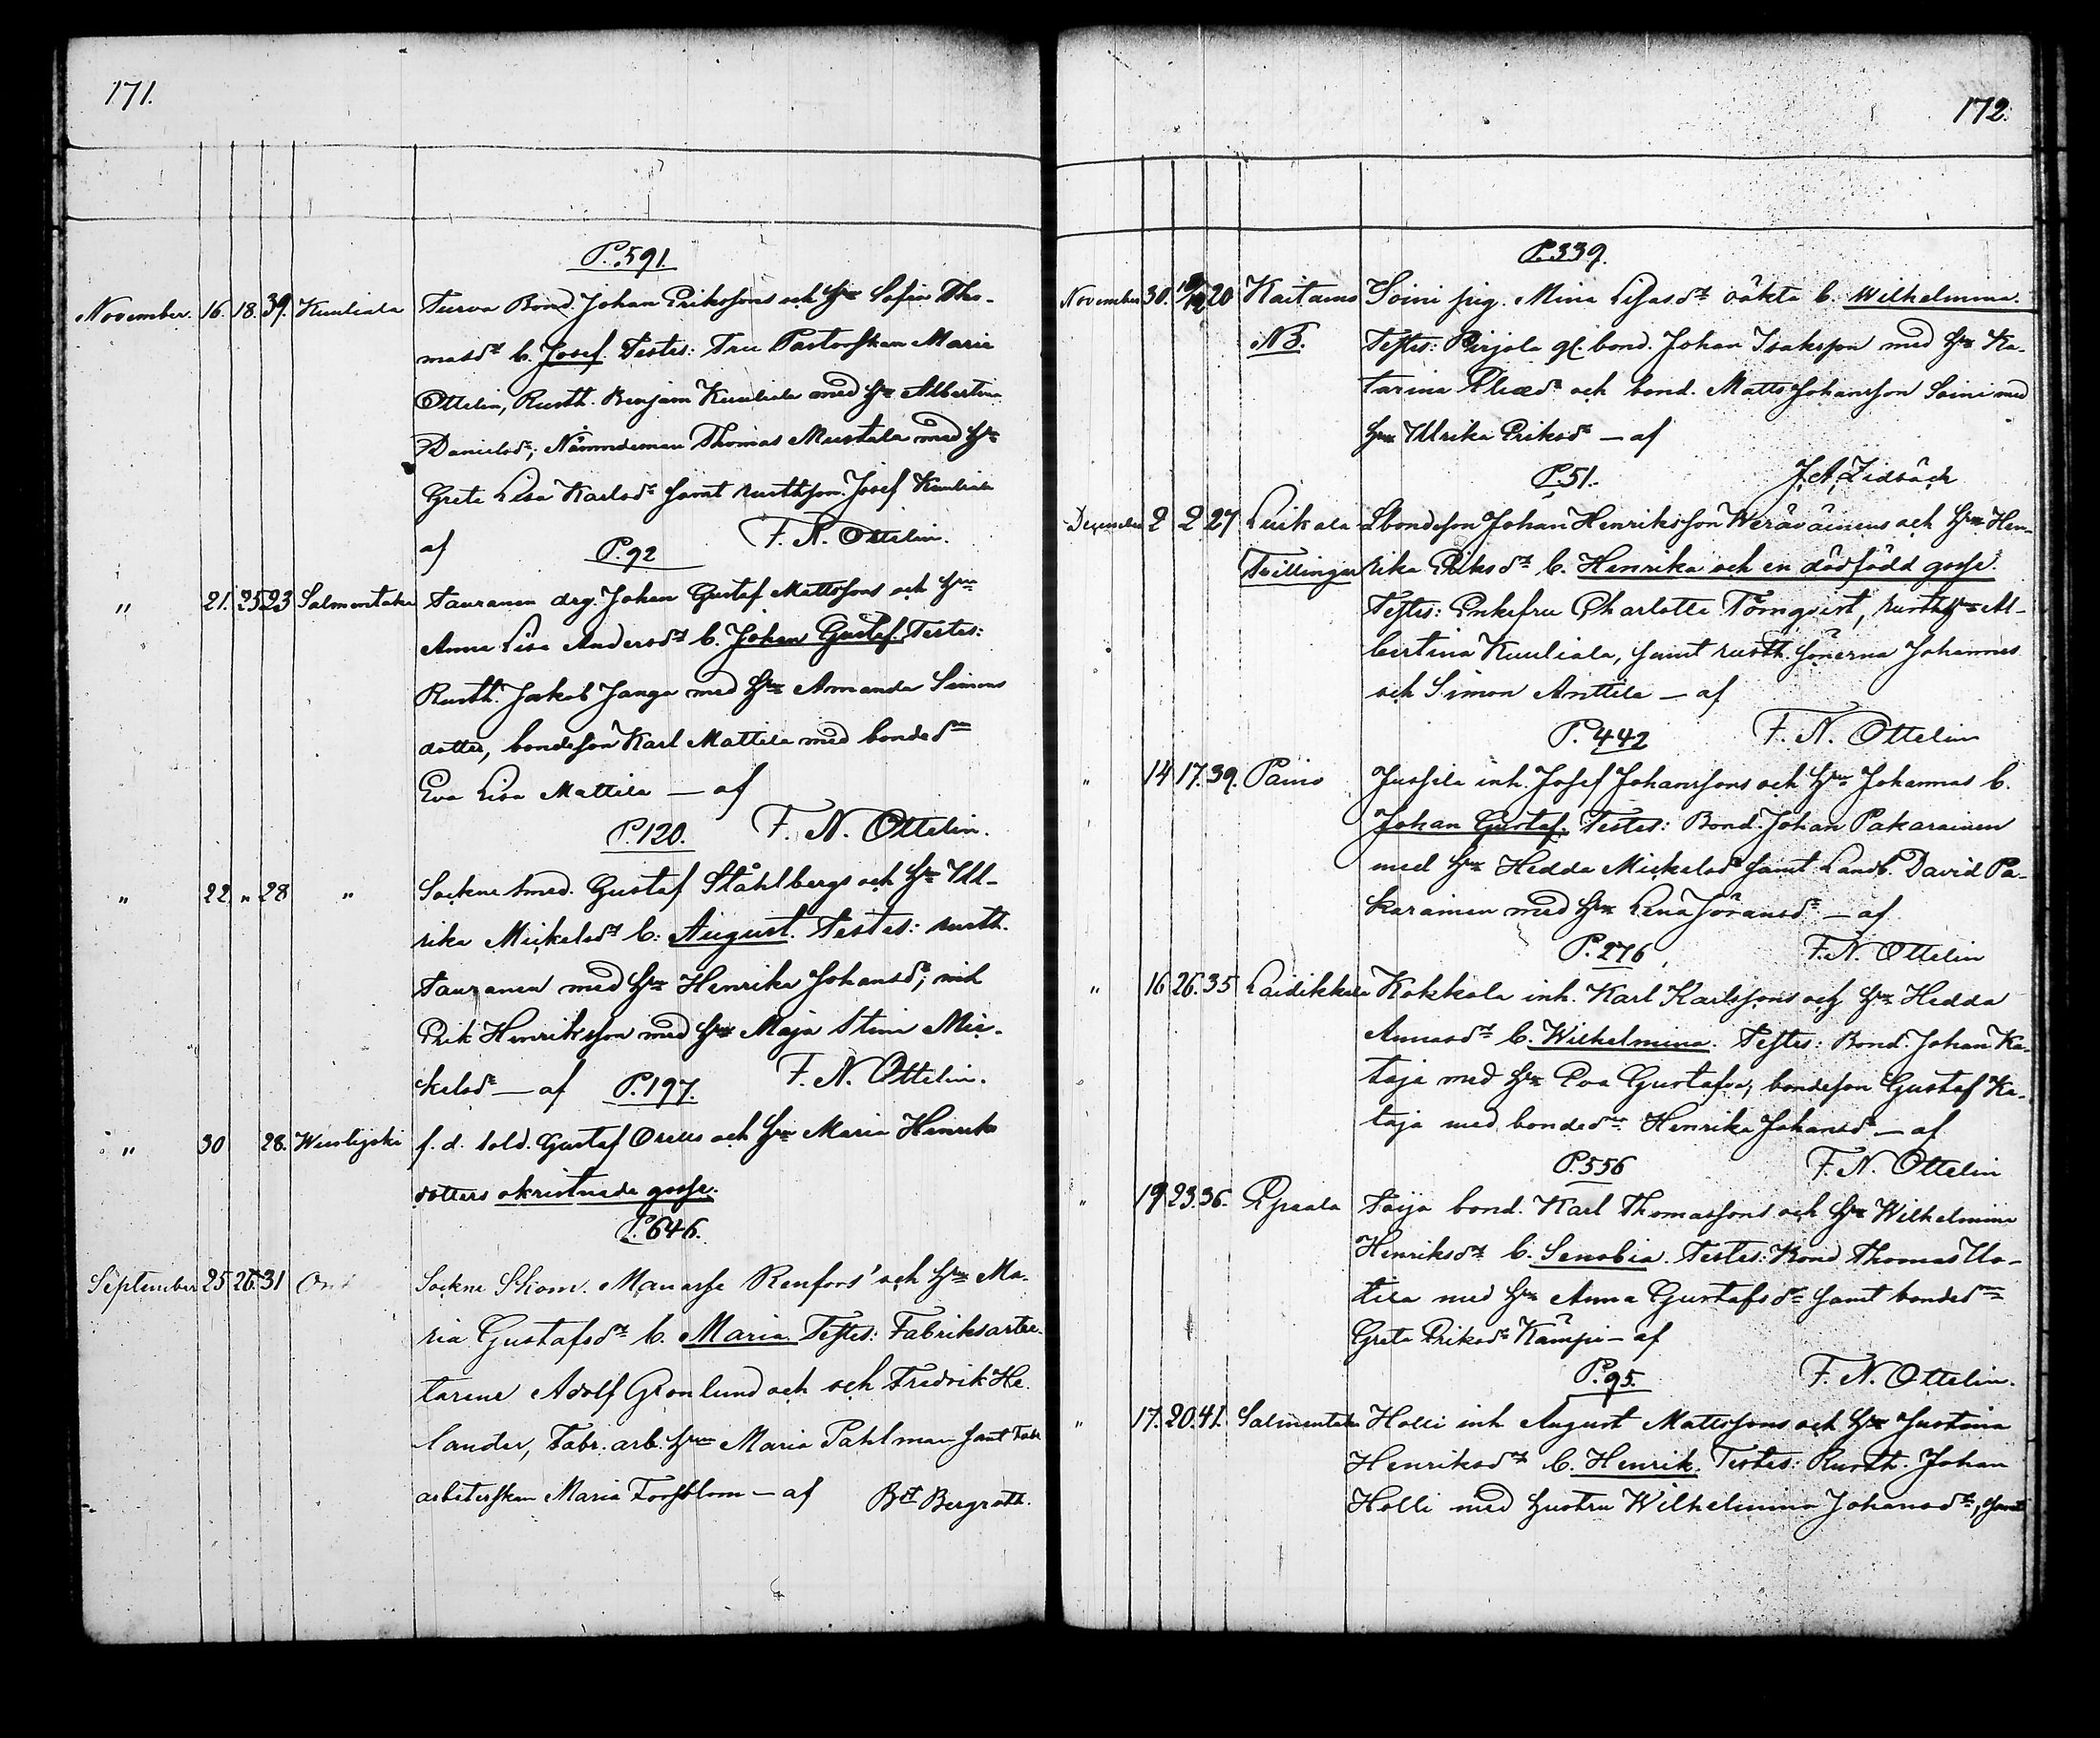 171.
P. 591.
November. 16. 18. 39. Kuuliala Turva Bond. Johan Erikssons och Hru Sofia Tho-
masdr b. Josef. Testes: Fru Pastorskan Marie
Ottelin, Rusth. Benjam Kuuliala med Hru Albertina
Danielsdr, Nämndeman Thomas Mustala med Hru
Greta Lisa Karlsdr samt rusthson. Josef Kuuliala
af F. N. Ottelin.
P. 92
" 21. 25 23 Salmentaka Tauranen drg. Johan Gustaf Mattssons och Hru
Anna Lisa Andersdr b. Johan Gustaf. Testes:
Rusth. Jakob Janga med Hru Amanda Simons
dotter, bondeson Karl Mattila med bondedrn
Eva Lisa Mattila — af
P. 120. F. N. Ottelin.
" 22. " 28 " Sockne smed. Gustaf Ståhlbergs och Hru Ull-
rika Mickelsdr b: August. Testes: rusth.
Tauranen med Hru Henrika Johansdr, inh
Erik Henriksson med Hru Maja Stina Mic-
kelsdr — af P. 197. F. N. Ottelin.
" 30 28. f. d. sold. Gustaf och Hru Maria Henriks
dotters okristnade gosse.
P. 646.
September 25 26. 31 Sockne Skom. Manasse Renfors' och Hru Ma-
ria Gustafsdr b. Maria. Testes: Fabriksarbe-
tarene Adolf Gronlund och och Fredrik He-
lander, Fabr. arb. Hru Maria Pahlman samt Fabr
arbeterskan Maria Forsblom — af Bergroth.
172.
P. 339.
November 30. 20 Kaitamo Soini pig. Mina Lisasdr oäkta b. Wilhelmina.
NB. Testes: Pirjola gl. bond. Johan Isaksson med Hru Ka-
tarina och bond. Matts Johansson Soini med
Hru Ulrika Eriksdr — af
P. 51. J. A. Lidbäck
December 2 2 27 Lbondeson Johan Henriksson och Hru Hen-
Tvillingar rika Eriksdr b. Henrika och en dödfödd gosse.
Testes: Enkefru Charlotta Törnqvist, rusthHru Al-
bertina Kuuliala, samt rusth. sönerna Johannes
och Simon Anttila — af
P. 442 F. N. Ottelin
" 14 17. 39. Paino Jussila inh. Josef Johanssons och Hru Johannas b.
Johan Gustaf. Testes: Bond. Johan Pakarainen
med Hru Hedda Mickelsdr samt Landb. David Pa-
karainen med Hru Lena Jöransdr — af
P. 276. F. N. Ottelin
" 16 26. 35 Laidikkala Kokkola inh. Karl Karlssons och Hru Hedda
Annasdr b. Wilhelmina. Testes: Bond. Johan Ka-
taja med Hru Eva Gustafva, bondeson Gustaf Ka-
taja med bondedrn Henrika Johansdr — af
P. 556 F. N. Ottelin
" 19 23. 36. Taija bond. Karl Thomassons och Hru Wilhelmina
Henriksdr b. Senobia. Testes: Bond Thomas Uo-
tila med Hru Anna Gustafsdr samt bondedrn
Greta Eriksdr Kämpi — af
P. 95. F. N. Ottelin.
" 17. 20. 41. Salmentaka Holli inh August Mattssons och Hru Justina
Henriksdr b. Henrik. Testes: Rusth. Johan
Holli med Hustru Wilhelmina Johansdr, samt